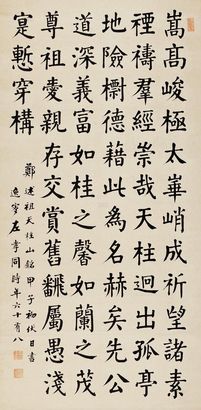 嵩高峻極太華峭成祈望諸素
禋禱羣經崇哉天柱迥出孤亭
地險標德藉此為名赫矣先公
道深義富如桂之馨如蘭之茂
尊祖愛親存交賞舊飜屬愚淺
寔慙穿構
鄭述祖天柱山銘甲子初伏日書
左孝同時年六十有八